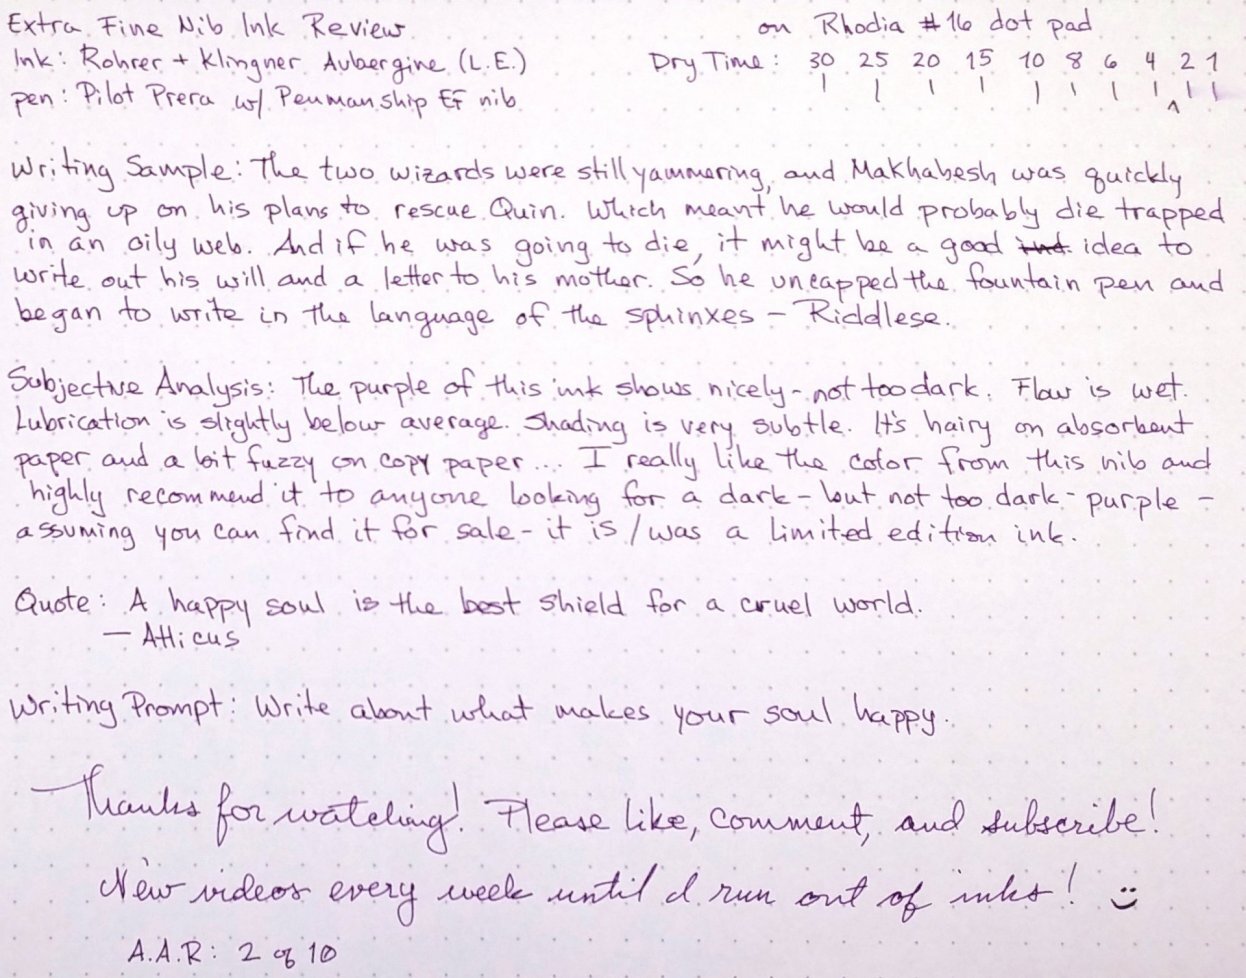 Extra Fine Nib Ink Review on Rhodia #16 dot pad
Ink: Rohrer + Klingner Aubergine (L.E.) Dry Time: 30 25 20 15 10 8 6 4 2 1
pen: Pilot Prera w/ Penmanship EF nib
Writing Sample: The two wizards were still yammering, and Makhabesh was quickly
giving up on his plans to rescue Quin. Which meant he would probably die trapped
in an oily web. And if he was going to die, it might be a good idea to
write out his will and a letter to his mother. So he uncapped the fountain pen and
began to write in the language of the sphinxes - Riddlese.
Subjective Analysis: The purple of this ink shows nicely - not too dark. Flow is wet.
Lubrication is slightly below average. Shading is very subtle. It's hairy on absorbent
paper and a bit fuzzy on copy paper... I really like the color from this nib and
highly recommend it to anyone looking for a dark - but not too dark - purple -
assuming you can find it for sale - it is / was a limited edition ink.
Quote: A happy soul is the best shield for a cruel world.
— Atticus
Writing Prompt: Write about what makes your soul happy.
Thanks for watching! Please like, comment, and subscribe!
New videos every week until I run out of inks! :)
A.A.R: 2 of 10